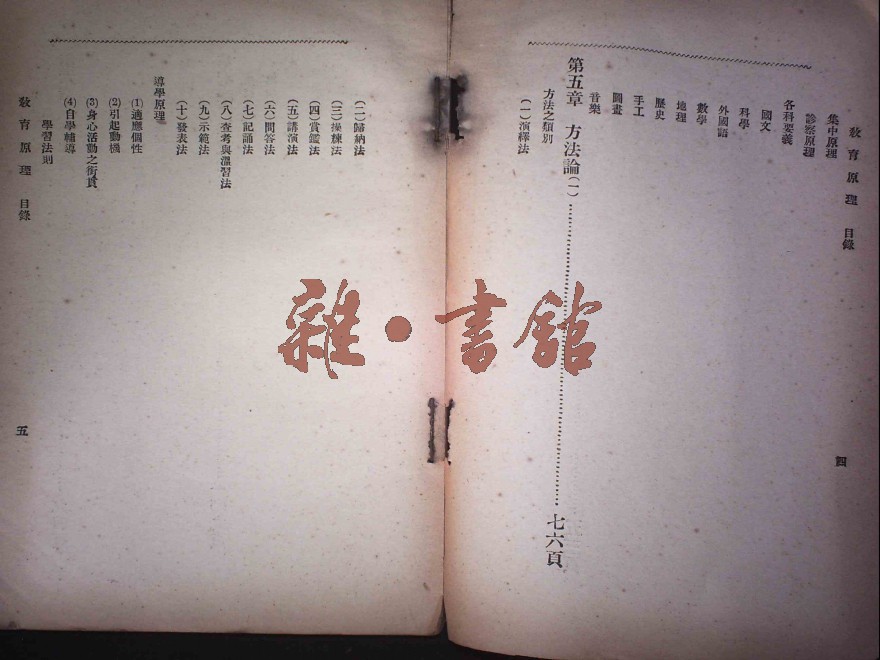 教育原理 目錄
四
集中原理
診察原理
各科要義
國文
科學
外國語
數學
地理
歷史
手工
圖畫
音樂
第五章 方法論(一)…………七六頁
方法之類別
(一)演繹法
(二)歸納法
(三)操練法
(四)賞鑑法
(五)講演法
(六)問答法
(七)記誦法
(八)查考與溫習法
(九)示範法
(十)發表法
導學原理
(1)適應個性
(2)引起動機
(3)身心活動之銜貫
(4)自學輔導
學習法則
教育原理 目錄
五
雜·書館